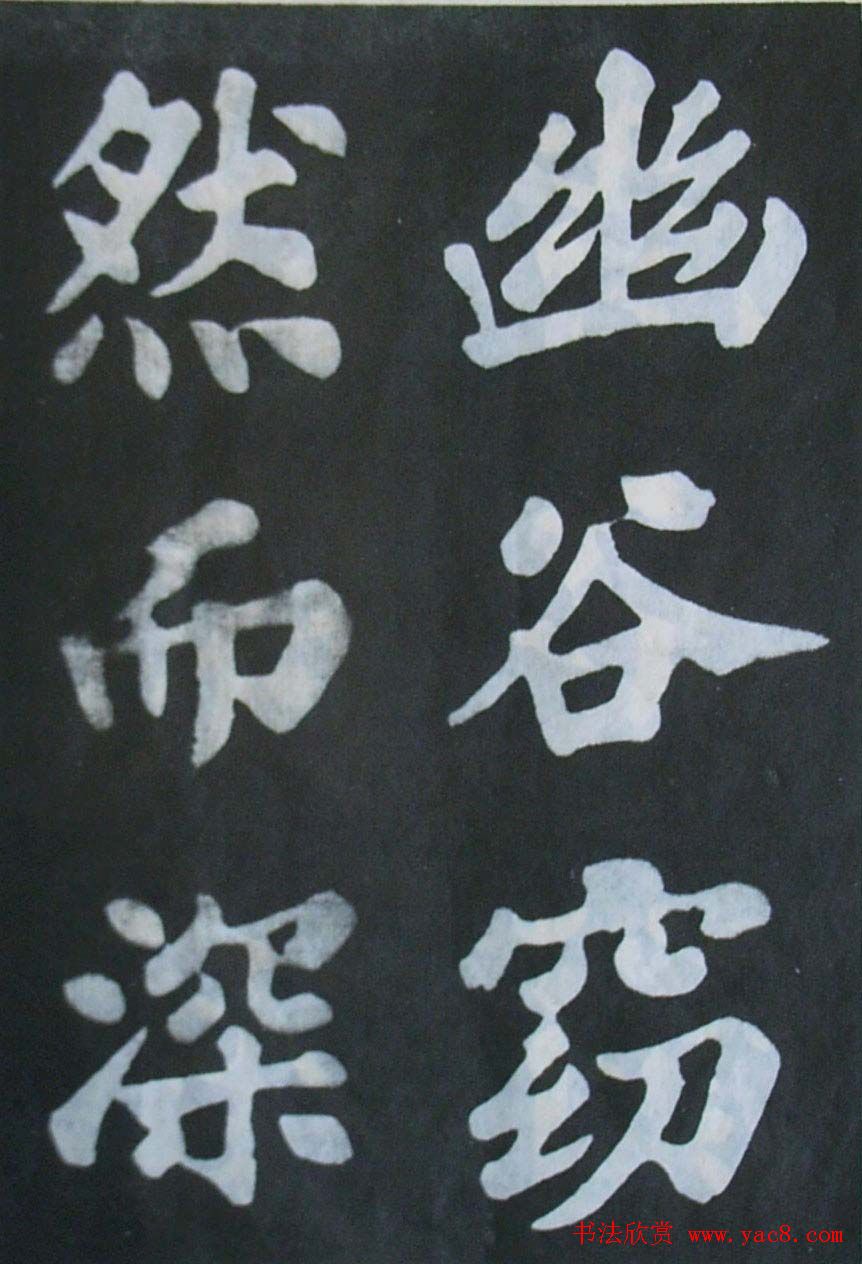 幽谷窈
然而深
书法欣赏 www.yac8.com